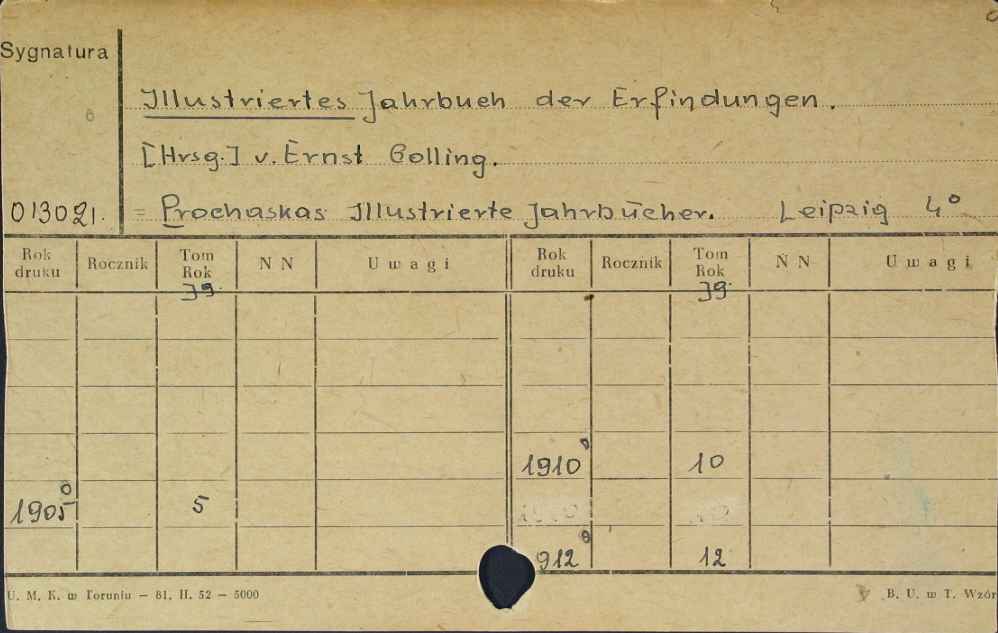 Sygnatura
Illustriertes Jahrbuch der Erfindungen.
[Hrsg.] v. Ernst Golling.
013021. = Prochaskas Illustrierte Jahrbücher. Leipzig 4°
Rok druku Rocznik Tom Rok N N Uwagi Rok druku Rocznik Tom Rok N N Uwagi
Jg. Jg.
1910 10
1905 5
912 12
U. M. K. w Toruniu — 81. H. 52 — 5000 B. U. w T. Wzór